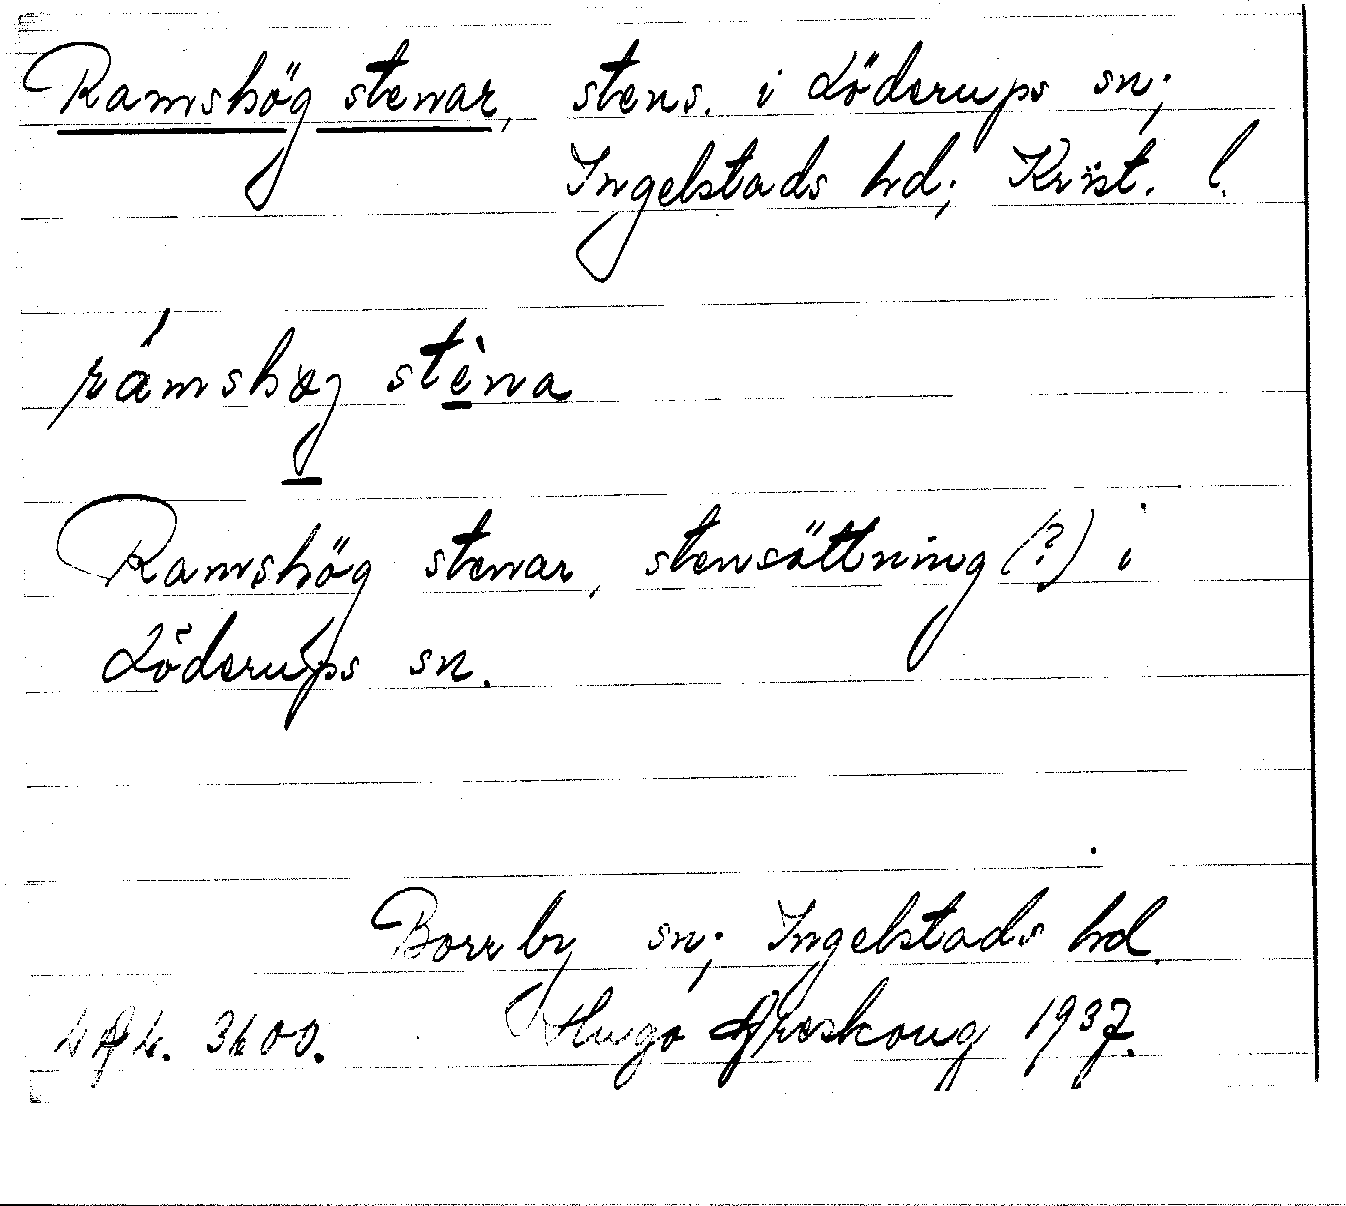 Ramshög stenar, stens. i Löderups sn;
Ingelstads hd; Krist. l.
rámshög stèna
Ramshög stenar, stensättning (?) i
Löderups sn.
Borrby sn; Ingelstads hd.
3600. Hugo Areskoug 1937.